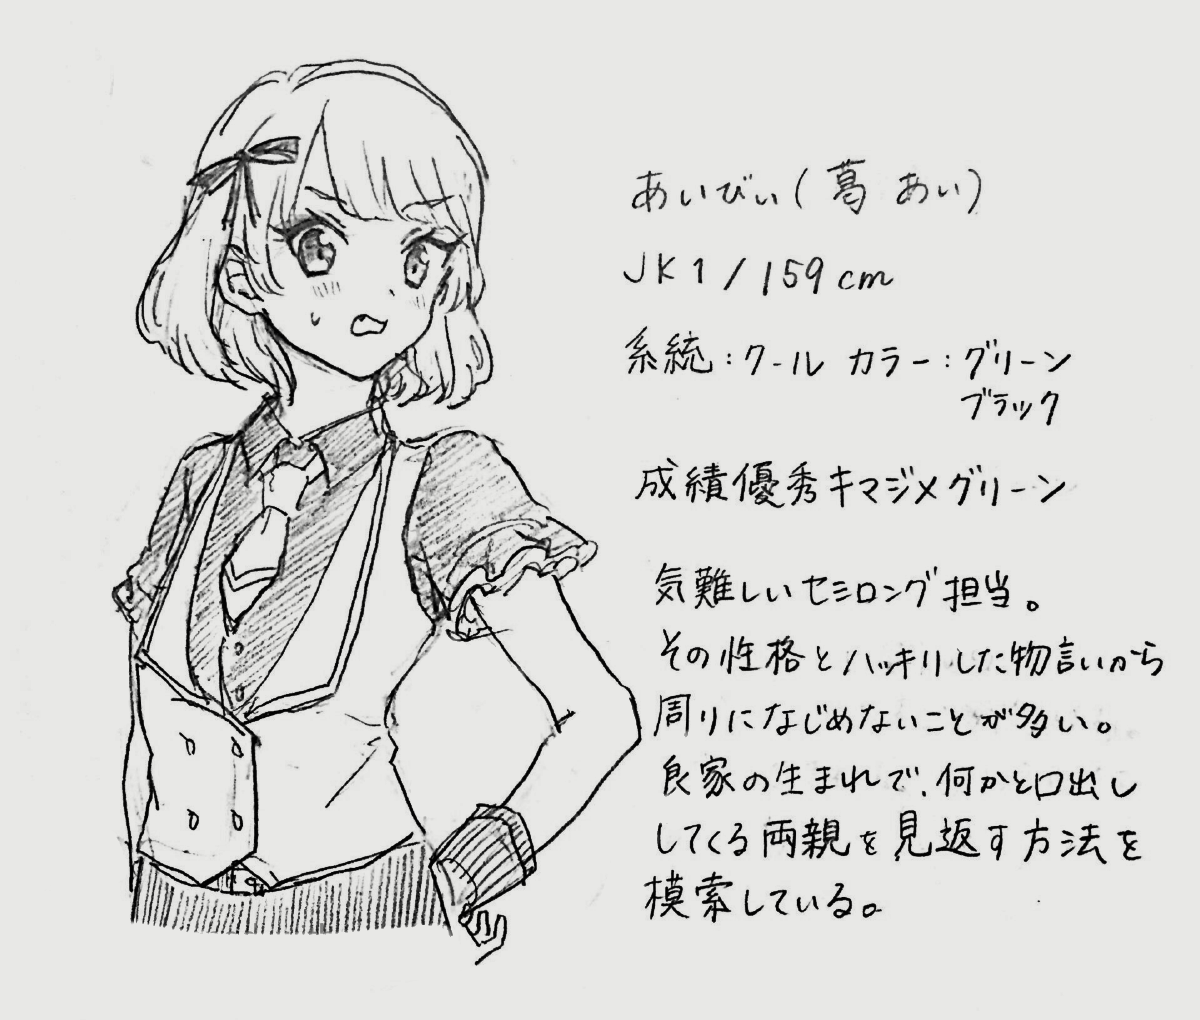 あいびぃ(葛 あい)
JK1/159cm
系統:クール カラー:グリーン
ブラック
成績優秀キマジメグリーン
気難しいセミロング担当。
その性格とハッキリした物言いから
周りになじめないことが多い。
良家の生まれで、何かと口出し
してくる両親を見返す方法を
模索している。